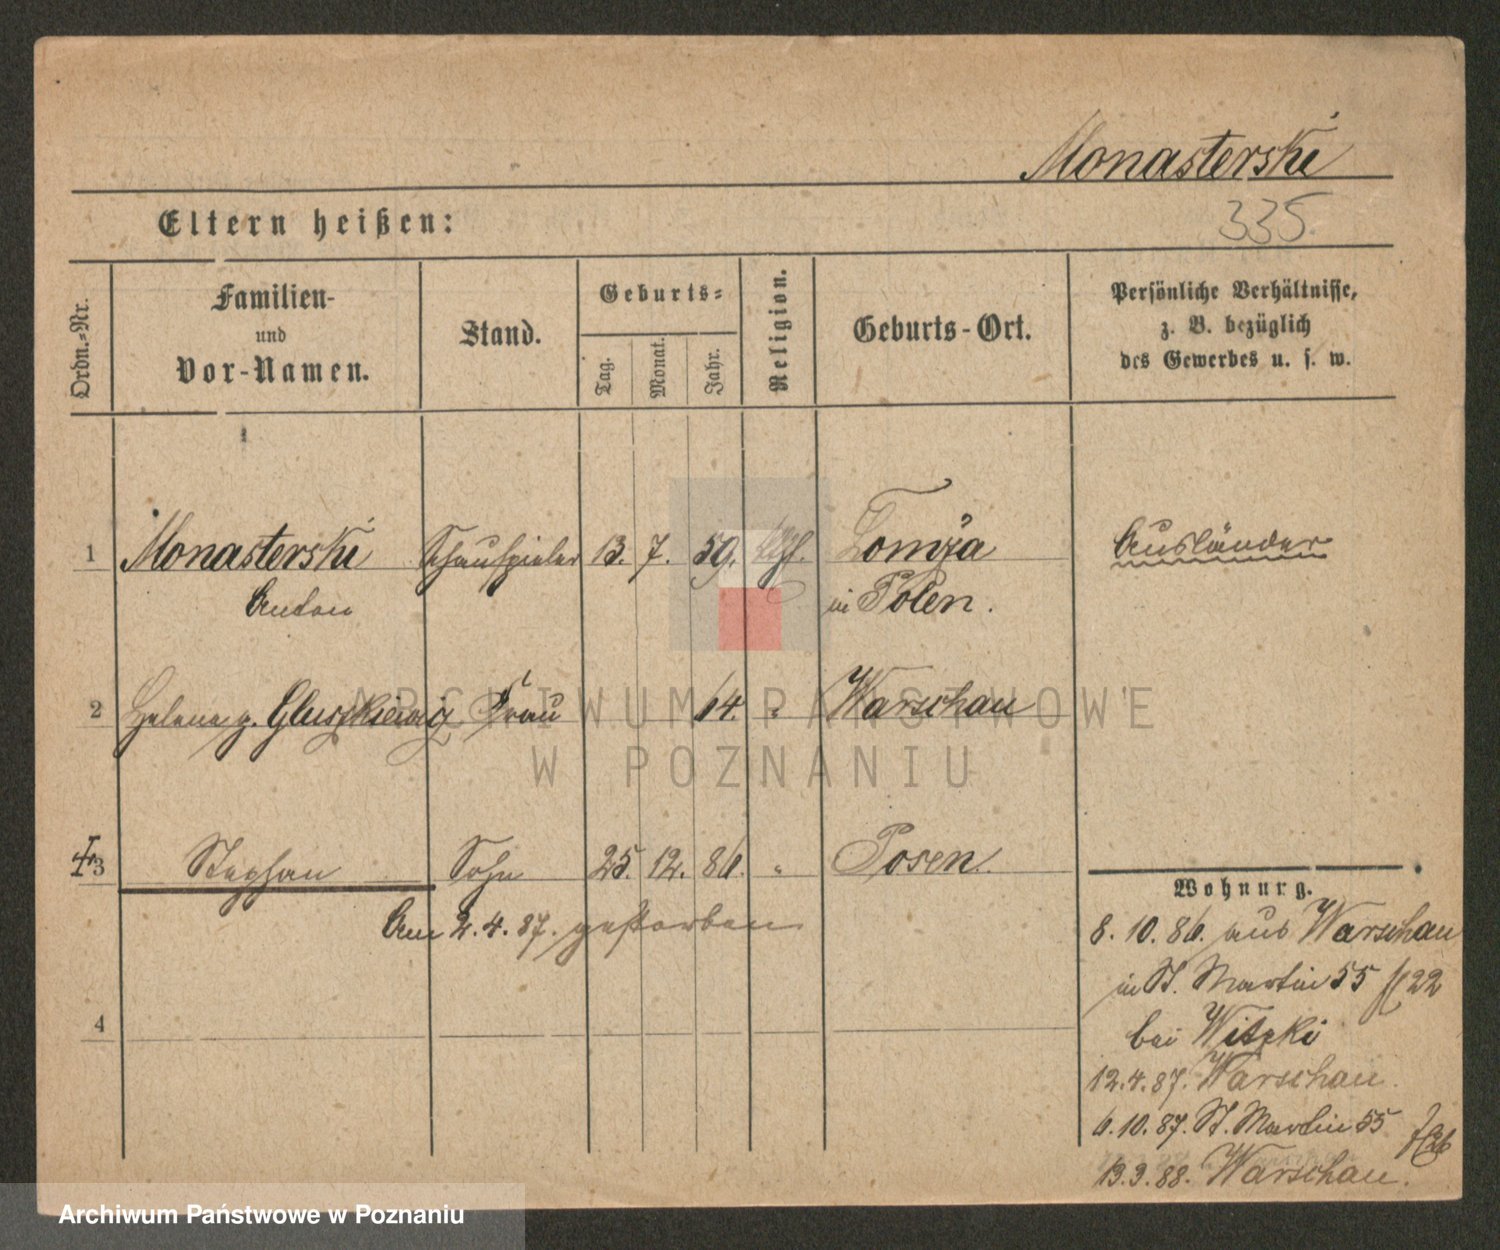 Monasterski
335.
Eltern heißen:
Ordn.-Nr.
Familien-
und
Vor-Namen.
Stand.
Geburts-
Tag.
Monat.
Jahr.
Religion.
Geburts-Ort.
Persönliche Verhältnisse,
z. B. bezüglich
des Gewerbes u. s. w.
1 Monasterski Schauspieler 13. 7. 59. Lomża Ausländer
Anton in Polen.
2 Helena g. Gluszkiewicz Frau 64. " Warschau
3 Stephan Sohn 25. 12. 86. " Posen.
Am 2.4.87. gestorben
4
Wohnung.
8. 10. 86. aus Warschau
in St. Martin 55 22
bei Witzki
12.4.87. Warschau.
6.10.87. St. Martin 55
13.3.88. Warschau.
ARCHIWUM PAŃSTWOWE
W POZNANIU
Archiwum Państwowe w Poznaniu